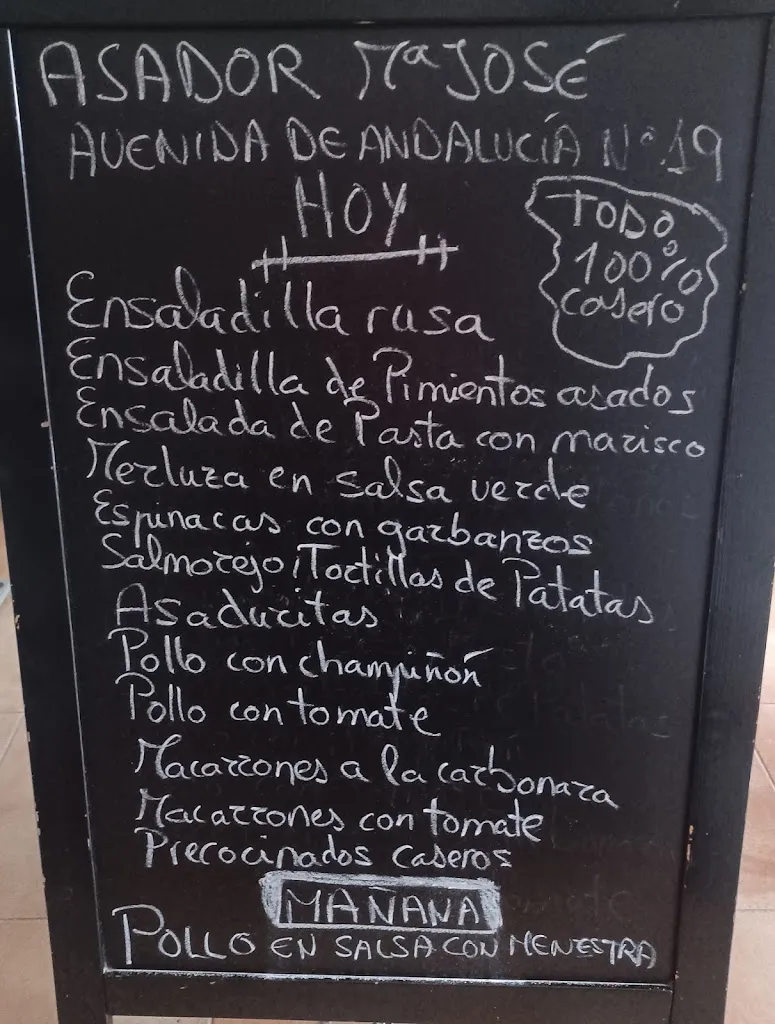 ASADOR Mª JOSÉ
AVENIDA DE ANDALUCÍA Nº 19
HOY
TODO
100%
casero
Ensaladilla rusa
Ensaladilla de Pimientos asados
Ensalada de Pasta con marisco
Merluza en salsa verde
Espinacas con garbanzos
Salmorejo / Tortillas de Patatas
Asaduritas
Pollo con champiñón
Pollo con tomate
Macarrones a la carbonara
Macarrones con tomate
Precocinados caseros
MAÑANA
POLLO EN SALSA CON MENESTRA